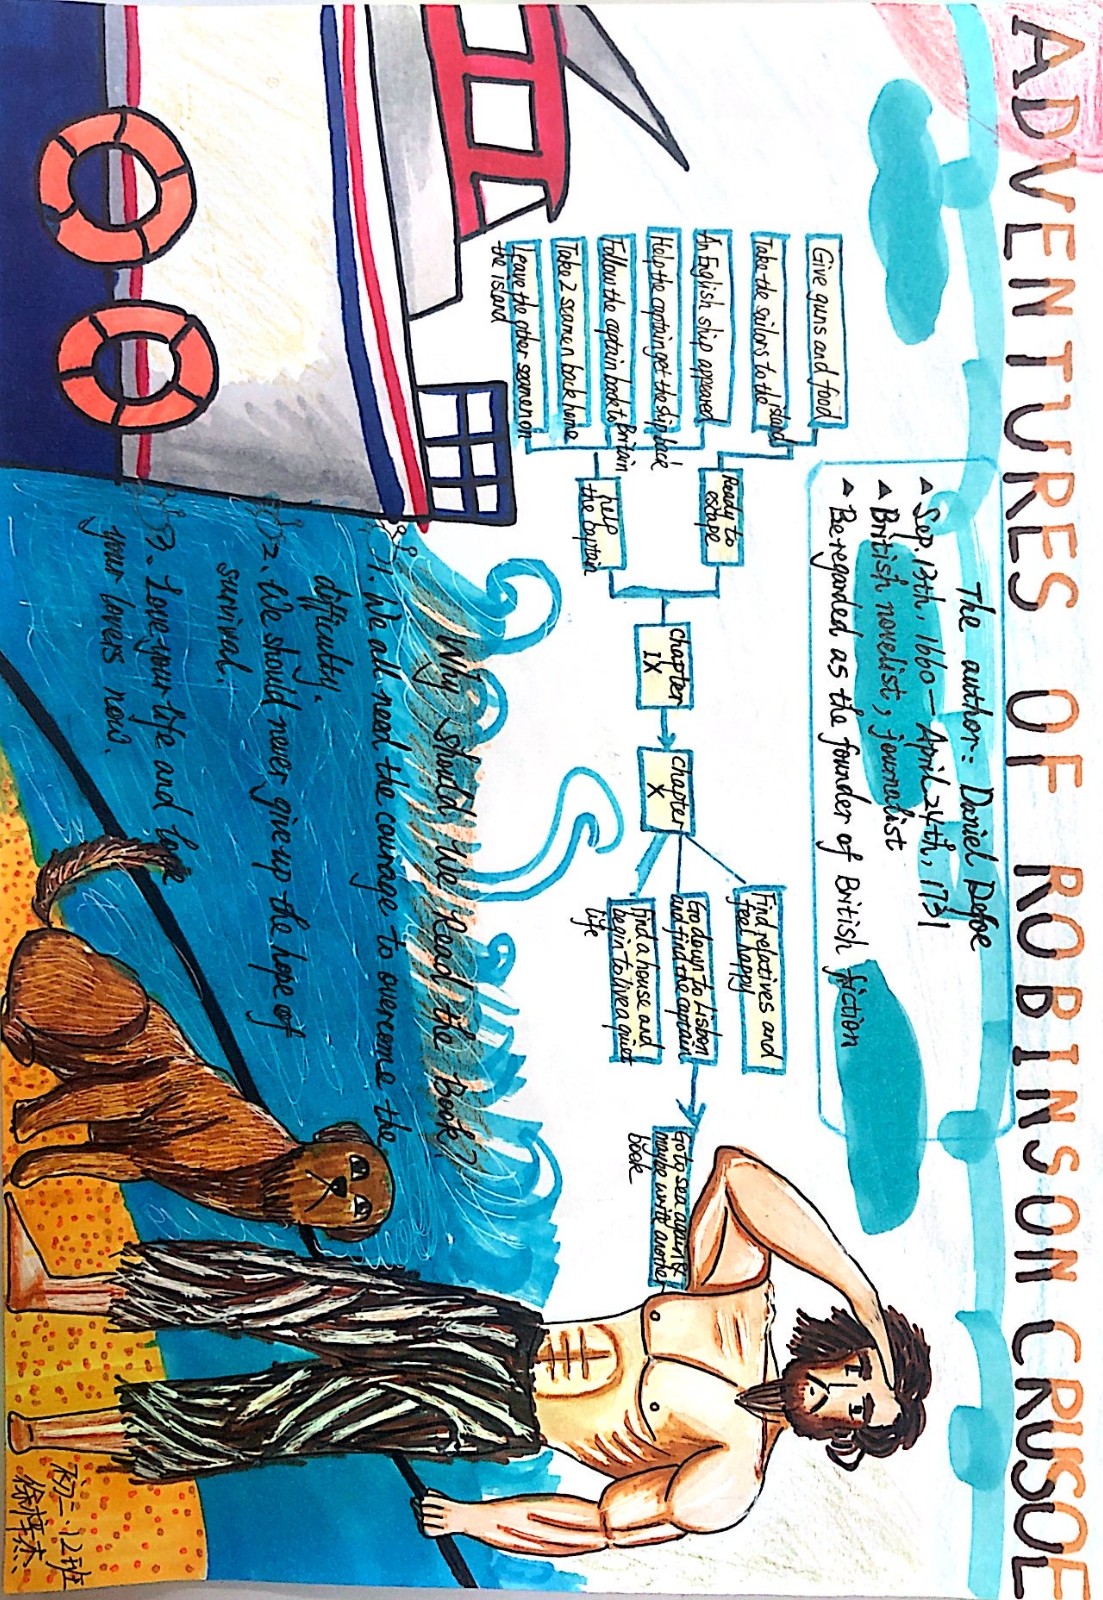 ADVENTURES OF ROBINSON CRUSOE
The author: Daniel Defoe
△ Sep. 13th, 1660 - April 24th, 1731
△ British novelist, journalist
△ Be regarded as the founder of British fiction
Give guns and food
Take the sailors to the island
An English ship appeared
Help the captain get the ship back
Follow the captain back to Britain
Take 2 seamen back home
Leave the other seamen on
the island
Ready to
escape
help
the captain
chapter
IX
chapter
X
Find relatives and
feel happy
Go down to Lisbon
and find the captain
find a house and
begin to live a quiet
life
Go to sea again &
maybe write another
book
Why should We Read the Book?
1. We all need the courage to overcome the
difficulty.
2. We should never give up the hope of
survival.
3. Love your life and love
your lovers now.
初二.12班
徐梓杰